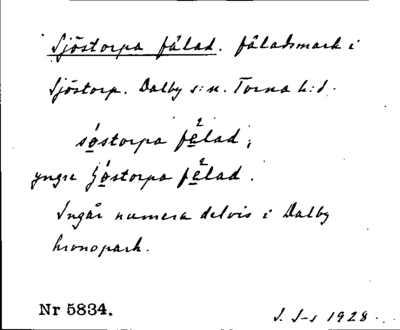 Sjöstorpa fälad. fäladsmark i
Sjöstorp. Dalby s:n. Torna h:d.
sóstorpa fęlad;
yngre
fęlad.
Ingår numera delvis i Dalby
kronopark.
Nr 5834.
1928.